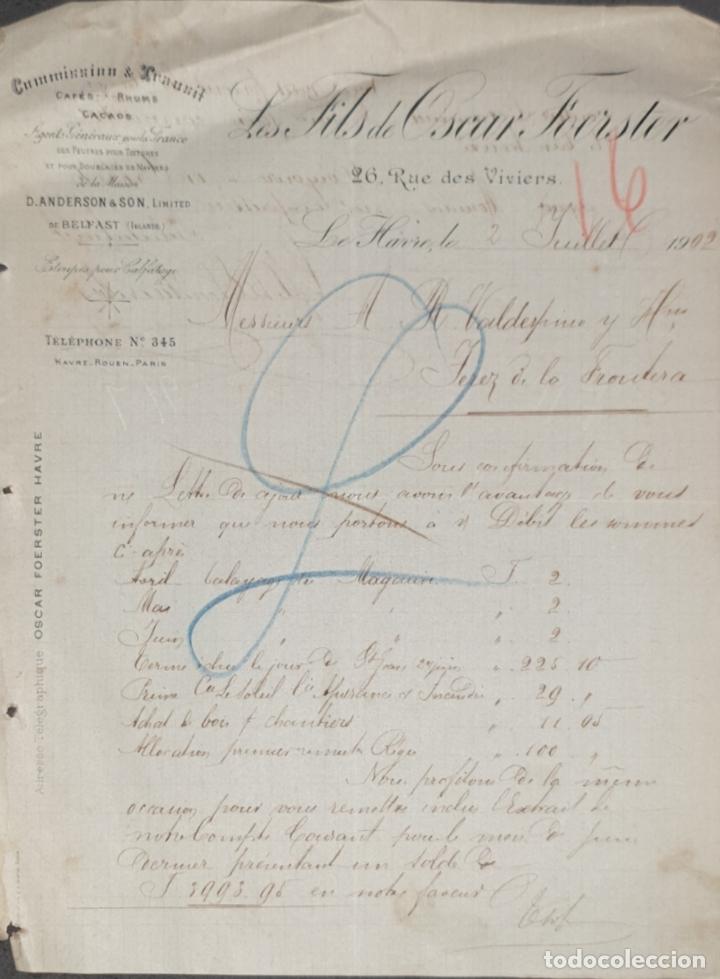 Commission & Transit
CAFÉS RHUMS
CACAOS
Agents Généraux pour la France
DES FEUTRES POUR TOITURES
ET POUR DOUBLAGES DE NAVIRES
de la Maison
D. ANDERSON & SON, LIMITED
DE BELFAST (IRLANDE)
Etoupes pour Calfatage
TÉLÉPHONE No 345
HAVRE-ROUEN-PARIS
Les Fils de Oscar Foerster
26, Rue des Viviers.
16
Le Hâvre, le 2 Juillet 1902
Messieurs A. R. Valdespino y Hno
Jerez de la Frontera
Adresse Télégraphique OSCAR FOERSTER HAVRE
Sous confirmation de
n/ Lettre de ce jour nous avons l'avantage de vous
informer que nous portons à v/ Débit les sommes
ci-après
Avril balayage de Magasin F 2.
Mai " " " 2
Juin " " " 2
Terme échu le jour de St Jean 24 juin " 225.10
Prime Cie Le Soleil d'Assurance s/ Incendie " 29 "
Achat de bois & chantiers " 11.95
Allocation premier " 100 "
Nous profitons de la même
occasion pour vous remettre inclus l'Extrait de
notre Compte Courant pour le mois de Juin
dernier présentant un solde de
F 3993.95 en notre faveur
todocoleccion
todocoleccion.net